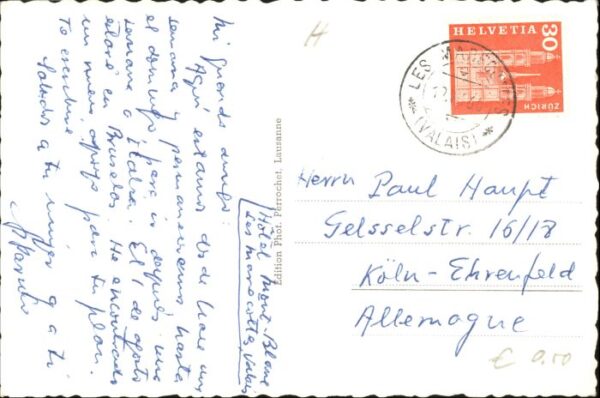 Mi querido amigo
Aquí estamos desde hace una
semana y permaneceremos hasta
el domingo para ir después una
semana a Italia. El 1 de agosto
estaré en Bruselas. He encontrado
un nuevo apoyo para tu plan.
Te escribiré
Saludos a tu mujer y a ti
Hôtel Mont-Blanc
Les Marecottes, Valais
Edition Phot. Perrochet, Lausanne
H
HELVETIA 30
ZÜRICH
LES MARECOTTES
(VALAIS)
Herrn Paul Haupt
Gelsselstr. 16/18
Köln-Ehrenfeld
Allemagne
€ 0.50